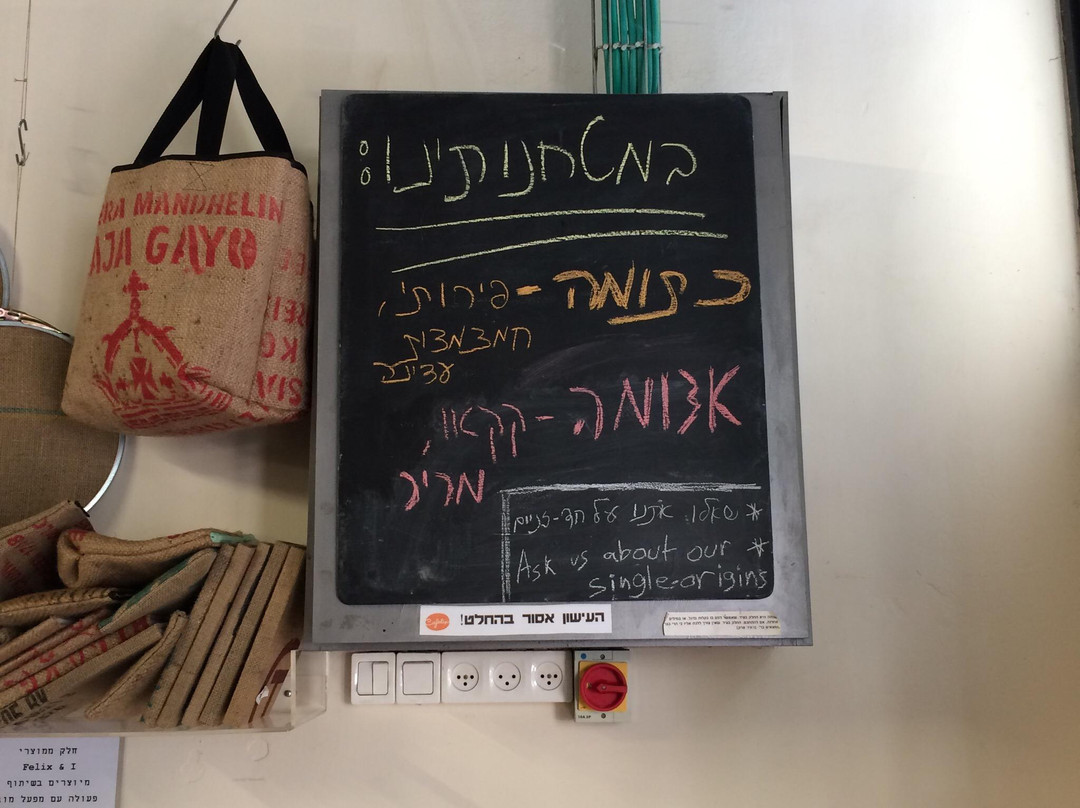 במטחנותינו:
כתומה - פירותי,
חמצמצית
עדינה
אדומה - קקאו,
מריר
* שאלו אתנו על חד-זניים
* Ask us about our
single-origins
העישון אסור בהחלט!
MANDHELIN
GAYO
חלק ממוצרי
Felix & I
מיוצרים בשיתוף
פעולה עם מפעל